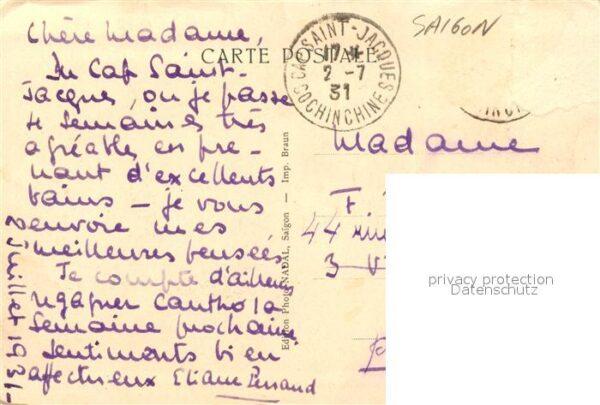 SAIGON
CARTE POSTALE
CAP SAINT-JACQUES
2 - 7
31
COCHINCHINE
Chère Madame,
Du Cap Saint-
Jacques, où je passe
4 semaines très
agréables en pre-
nant d'excellents
bains - je vous
envoie mes
meilleures pensées
Je compte d'ailleurs
regagner Cantho la
semaine prochaine
Sentiments bien
affectueux Eliane
2 Juillet 1931-
Edition Photo NADAL, Saïgon — Imp. Braun
Madame
44
3
privacy protection
Datenschutz